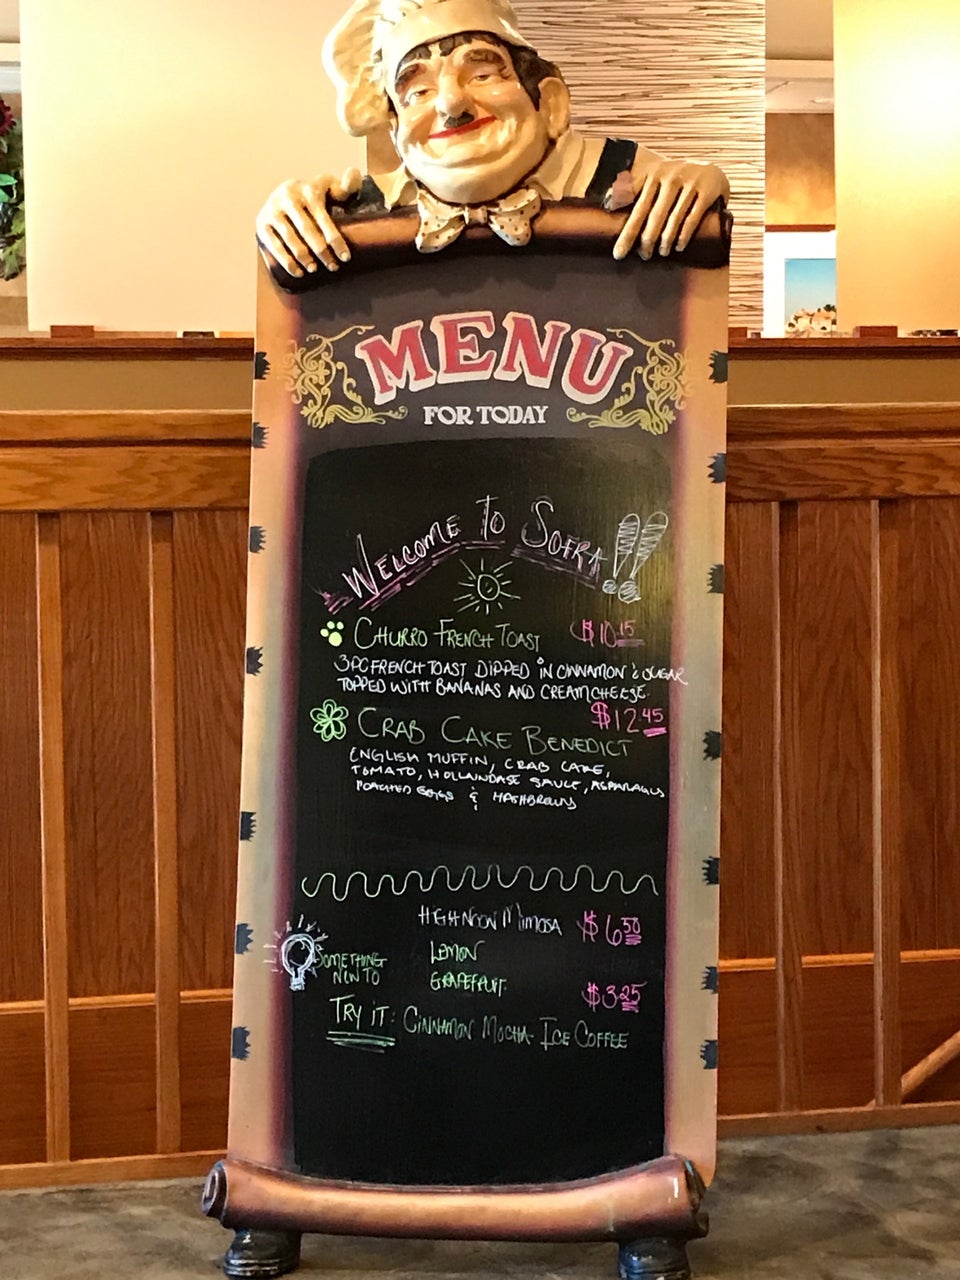 MENU
FOR TODAY
WELCOME TO SOFRA!!
CHURRO FRENCH TOAST $10.15
3PC FRENCH TOAST DIPPED IN CINNAMON & SUGAR
TOPPED WITH BANANAS AND CREAM CHEESE.
$12.45
CRAB CAKE BENEDICT
ENGLISH MUFFIN, CRAB CAKE,
TOMATO, HOLLANDASE SAUCE, ASPARAGUS
POACHED EGGS & HASHBROWNS
HIGH NOON MIMOSA $6.50
LEMON
SOMETHING
NEW TO
GRAPEFRUIT
$3.25
TRY IT: CINNAMON MOCHA- ICE COFFEE